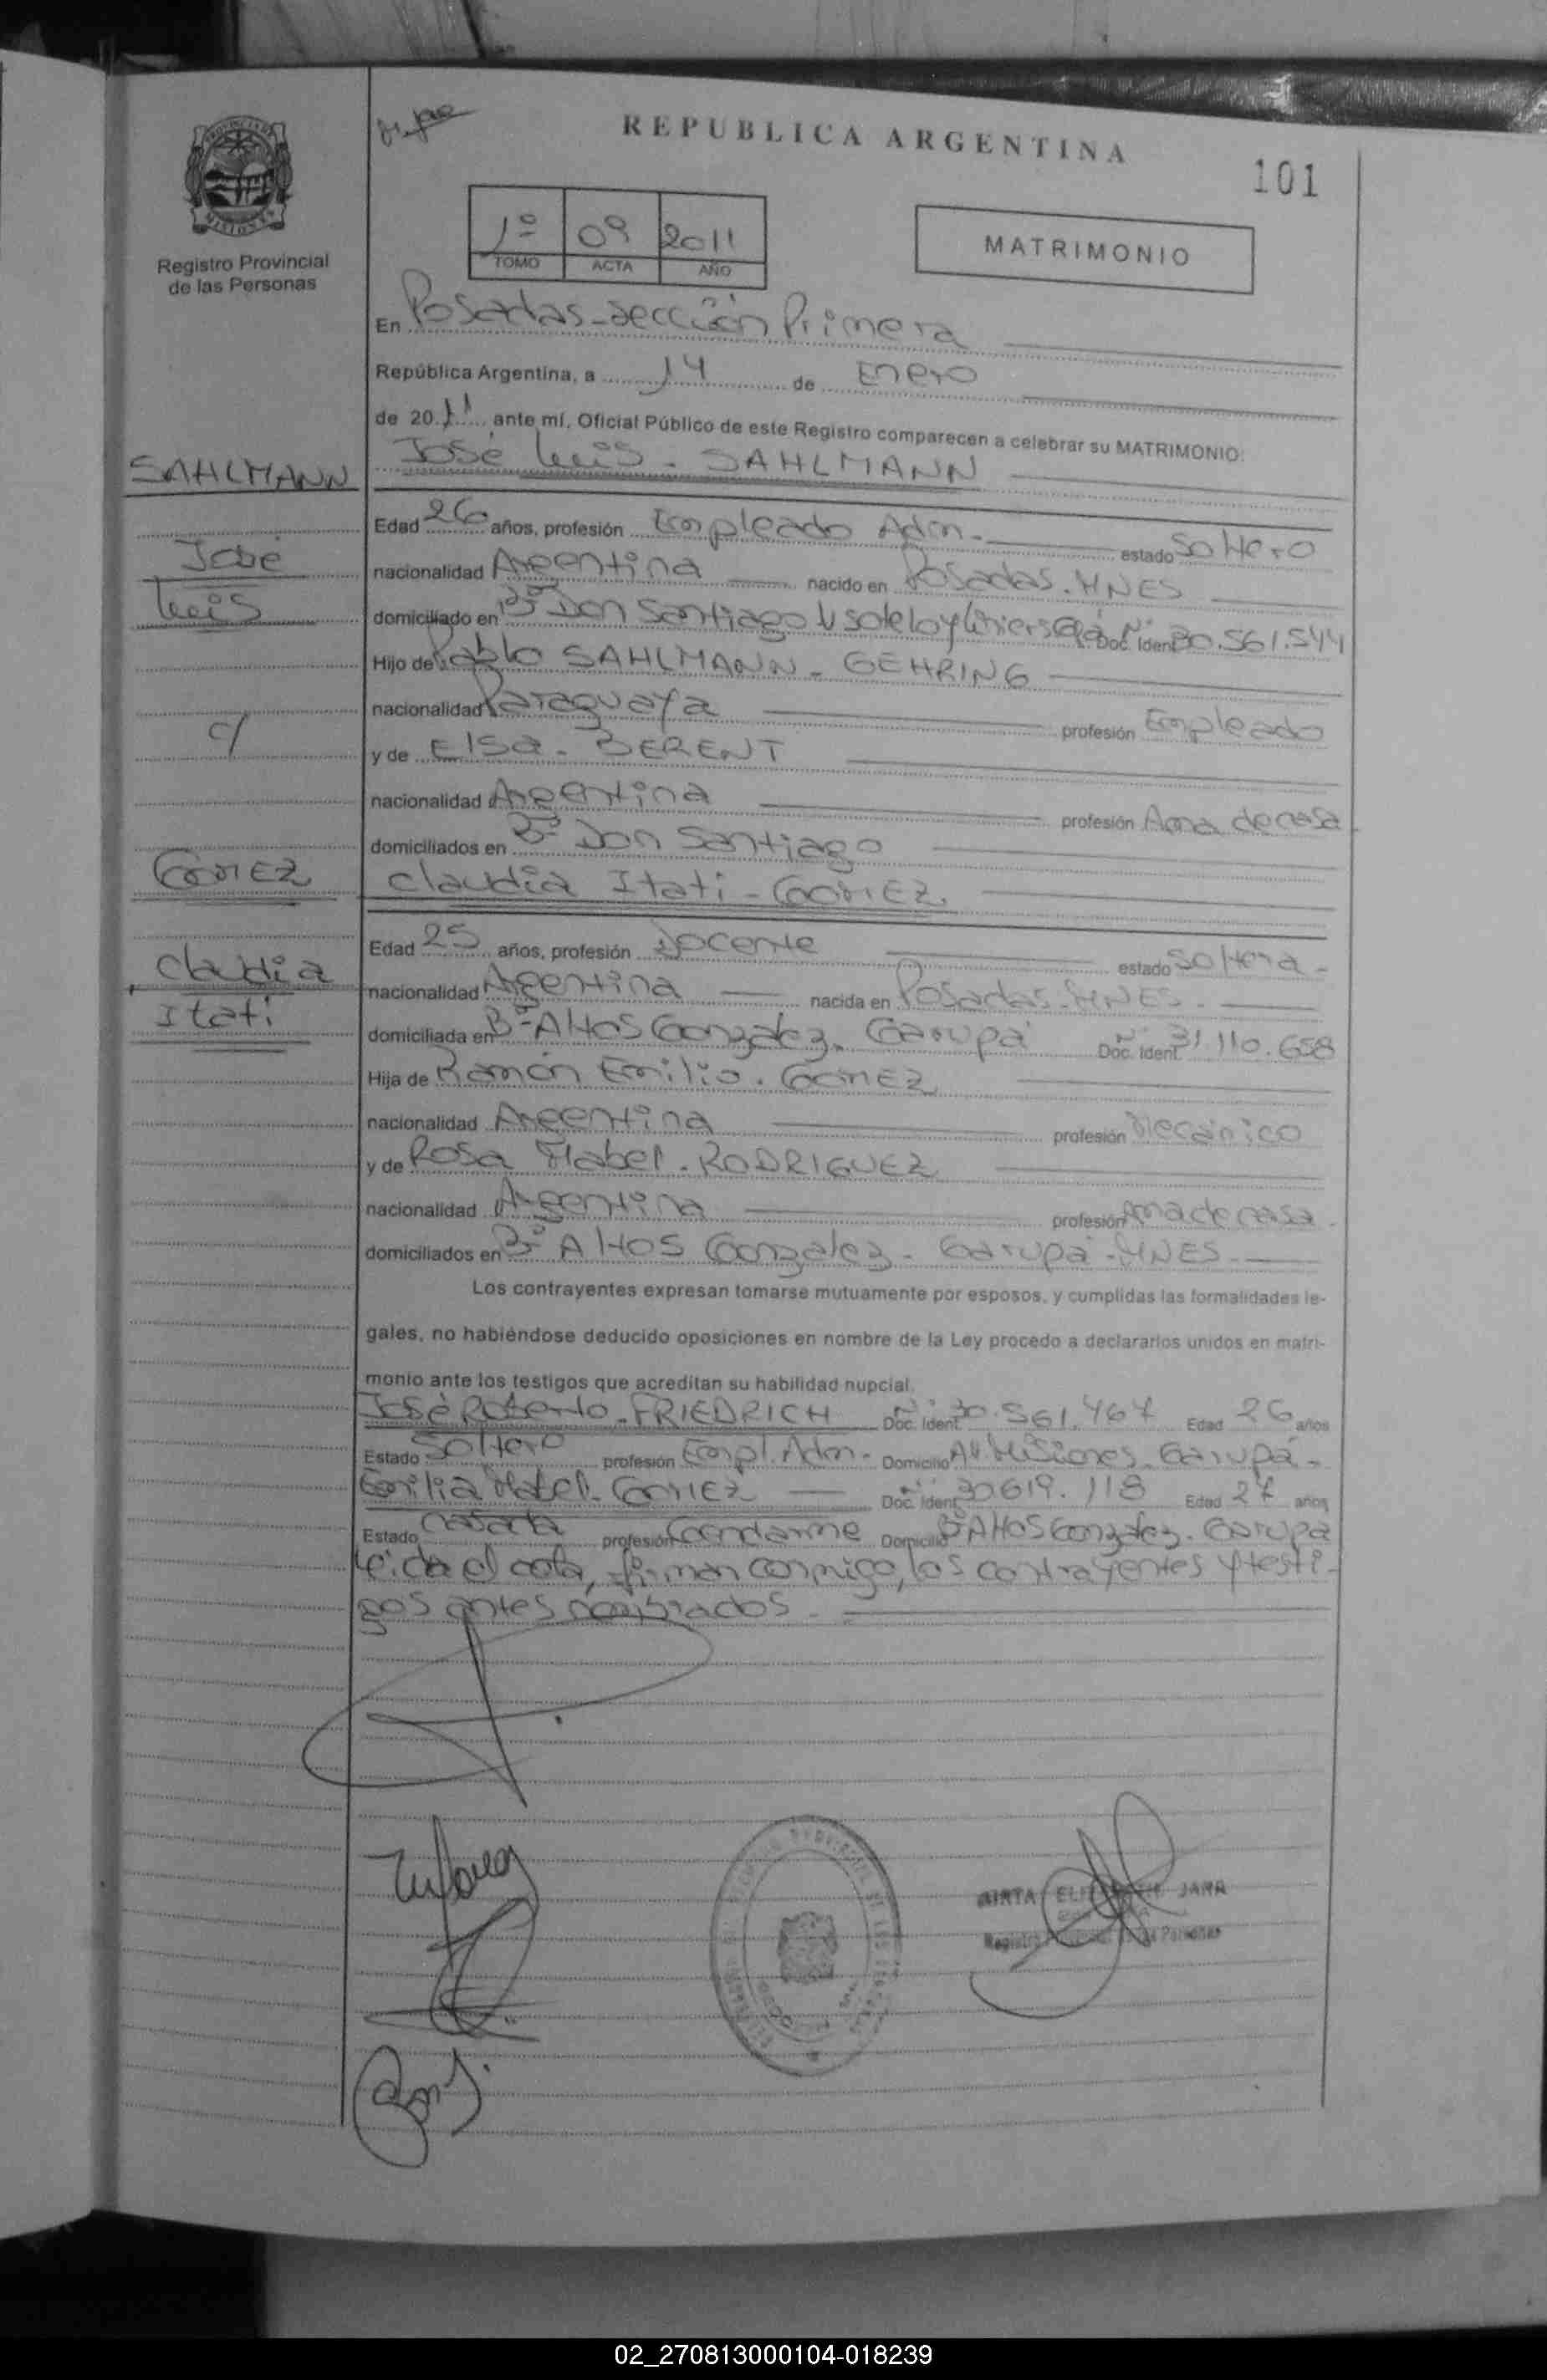 REPUBLICA ARGENTINA
101
1º 09 2011
TOMO ACTA AÑO
MATRIMONIO
Registro Provincial
de las Personas
En Posadas-Sección Primera
República Argentina, a 14 de Enero
de 2011 ante mí, Oficial Público de este Registro comparecen a celebrar su MATRIMONIO:
SAHLMANN José Luis - SAHLMANN
Edad 26 años, profesión Empleado Adm. estado Soltero
José nacionalidad Argentina nacido en Posadas. MNES
Luis domiciliado en Bº Don Santiago Doc. Ident Nº 30.561.544
Hijo de Pablo SAHLMANN - GEHRING
nacionalidad Paraguaya profesión Empleado
c/ y de Elsa - BERENT
nacionalidad Argentina profesión Ama de casa
domiciliados en Bº Don Santiago
GOMEZ Claudia Itati - GOMEZ.
Edad 25 años, profesión Docente estado Soltera -
Claudia nacionalidad Argentina nacida en Posadas. MNES.
Itati domiciliada en Bº Altos Gonzalez. Garupá Doc. Ident Nº 31.110.658
Hija de Ramón Emilio. GOMEZ
nacionalidad Argentina profesión Mecánico
y de Rosa Mabel. RODRIGUEZ
nacionalidad Argentina profesión Ama de casa.
domiciliados en Bº Altos Gonzalez - Garupá - MNES.
Los contrayentes expresan tomarse mutuamente por esposos, y cumplidas las formalidades le-
gales, no habiéndose deducido oposiciones en nombre de la Ley procedo a declararlos unidos en matri-
monio ante los testigos que acreditan su habilidad nupcial.
José Roberto - FRIEDRICH Doc. Ident Nº 30.561.467 Edad 26 años
Estado Soltero profesión Empl. Adm. Domicilio Av. Misiones. Garupá -
Emilia Mabel - GOMEZ Doc. Ident Nº 30619.118 Edad 27 años
Estado casada profesión Gendarme Domicilio Bº Altos Gonzalez. Garupá
Leida el acta, firman conmigo, los contrayentes y testi-
gos antes nombrados.
MIRTA ELIZABETH JARA
Registro Provincial de las Personas
02_270813000104-018239